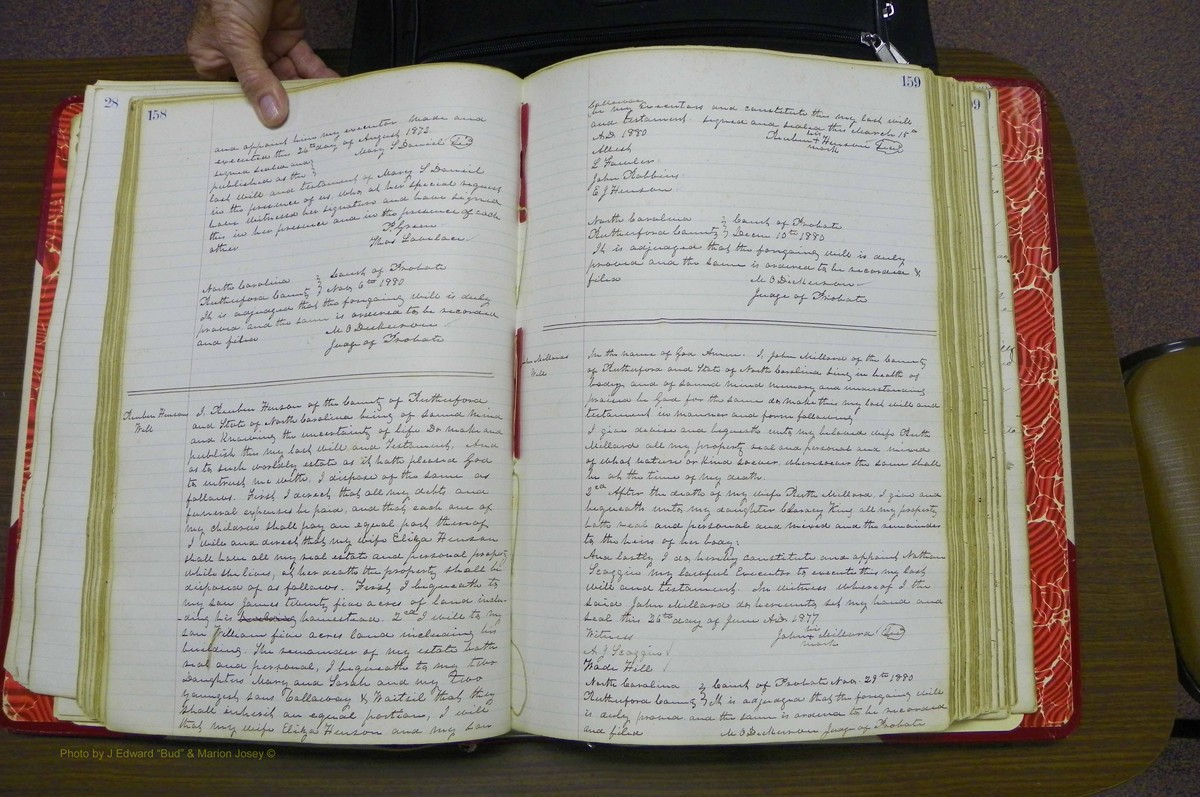 28
158
and appoint him my executor Made and
executed this 26th day of August 1872.
signed sealed and } Mary S Daniel Seal
published as the }
last will and testament of Mary S Daniel
in the presence of us who at her special request
have witnessed her signature and have signed
this in her presence and in the presence of each
other
P Green
Thos
North Carolina } Court of Probate
Rutherford County } Nov 6th 1880
It is adjudged that the foregoing will is duly
proved and the same is ordered to be recorded
and filed
M O Dickerson
Judge of Probate
Reuben Henson
Will
I Reuben Henson of the County of Rutherford
and State of North Carolina being of sound mind
and knowing the uncertainty of life Do make and
publish this my last will and Testament, And
as to such worldly estate as it hath pleased God
to entrust me with. I dispose of the same as
follows. First I direct that all my debts and
funeral expenses be paid, and that each one of
my children shall pay an equal part thereof
I will and direct that my wife Eliza Henson
shall have all my real estate and personal property
while she lives, at her death the property shall be
disposed of as follows. First, I bequeath to
my son James twenty five acres of land inclu-
-ding his homestead. 2nd I will to my
son William five acres land including his
building. The remainder of my estate both
real and personal, I bequeath to my two
Daughters Mary and Sarah and my two
youngest sons Calloway & that they
shall inherit an equal portion, I will
that my wife Eliza Henson and my son
159
Calloway
be my executors and constitute this my last will
and testament signed and sealed this March 18th
A.D. 1880
his
Reuben + Henson Seal
mark
Attest
L Fowler
John Robbins
E J Henson
North Carolina } Court of Probate
Rutherford County } Decem 10th 1880
It is adjudged that the foregoing will is duly
proved and the same is ordered to be recorded &
filed
M O Dickerson
Judge of Probate
John Millards
Will
In the name of God Amen. I, John Millard of the County
of Rutherford and State of North Carolina being in health of
body, and of sound mind memory and understanding
praised be God for the same do make this my last will and
testament in manner and form following
I give devise and bequeath unto my beloved wife Ruth
Millard all my property real and personal and mixed
of what nature or kind soever. wheresoever the same shall
be at the time of my death.
2nd After the death of my wife Ruth Millard, I give and
bequeath unto my daughter King all my property
both real and personal and mixed and the remainder
to the heirs of her body;
And lastly I do hereby constitute and appoint Nathan
Scoggin my lawful Executor to execute this my last
will and testament. In witness whereof I the
said John Millard do hereunto set my hand and
seal this 26th day of June A.D. 1877
Witness
his
John + Millard Seal
mark
A. J Scoggin
Wade Hill
North Carolina } Court of Probate Nov. 29th 1880
Rutherford County } It is adjudged that the foregoing will
is duly proved and the same is ordered to be recorded
and filed
M O Dickerson Judge of Probate
Photo by J Edward "Bud" & Marion Josey ©